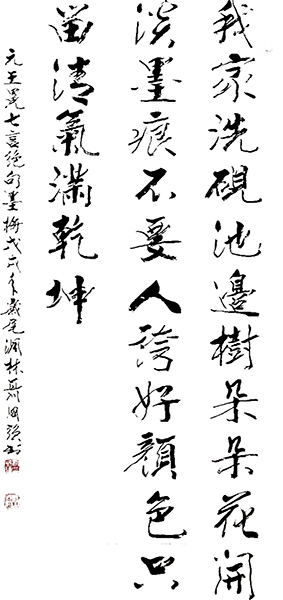 我家洗硯池邊樹朵朵花開
淡墨痕不要人誇好顏色只
留清氣滿乾坤
元王冕七言絕句墨梅戊戌年歲尾